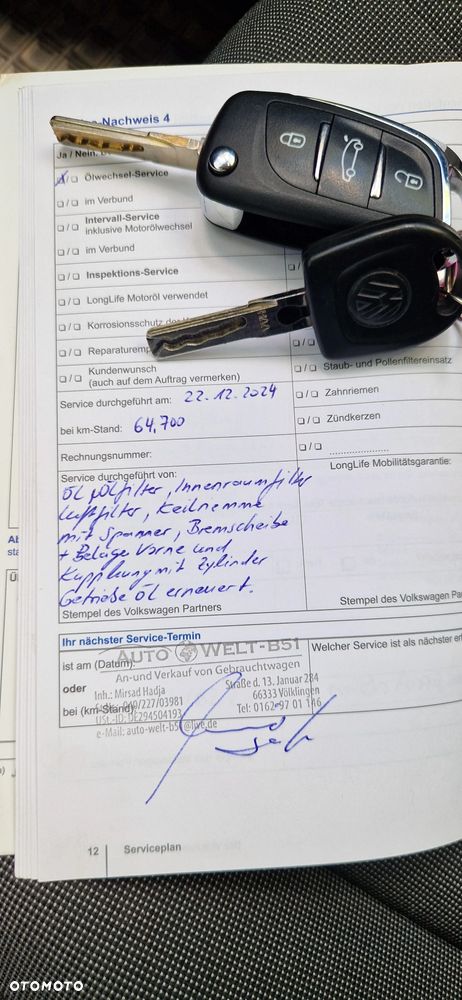 -Nachweis 4
Ja / Nein
Ölwechsel-Service
im Verbund
Intervall-Service
inklusive Motorölwechsel
im Verbund
Inspektions-Service
LongLife Motoröl verwendet
Korrosionsschutz
Reparaturemp
Kundenwunsch
(auch auf dem Auftrag vermerken)
Staub- und Pollenfiltereinsatz
Zahnriemen
Zündkerzen
Service durchgeführt am: 22.12.2024
bei km-Stand: 64,700
Rechnungsnummer:
LongLife Mobilitätsgarantie:
Service durchgeführt von:
Öl, Ölfilter, Innenraumfilter
Luftfilter, Keilriemme
mit Spanner, Bremscheibe
+ Beläge Vorne und
Kupplung mit Zylinder
Getriebe Öl erneuert.
Stempel des Volkswagen Partners
Stempel des Volkswagen Pa
Ihr nächster Service-Termin
ist am (Datum):
oder
bei (km-Stand):
Welcher Service ist als nächster er
AUTO WELT-B51
An-und Verkauf von Gebrauchtwagen
Inh.: Mirsad Hadja
Straße d. 13. Januar 284
66333 Völklingen
040/227/03981
USt.-ID: DE294504193
Tel: 0162 97 01 146
e-Mail: auto-welt-b51@live.de
12 Serviceplan
OTOMOTO